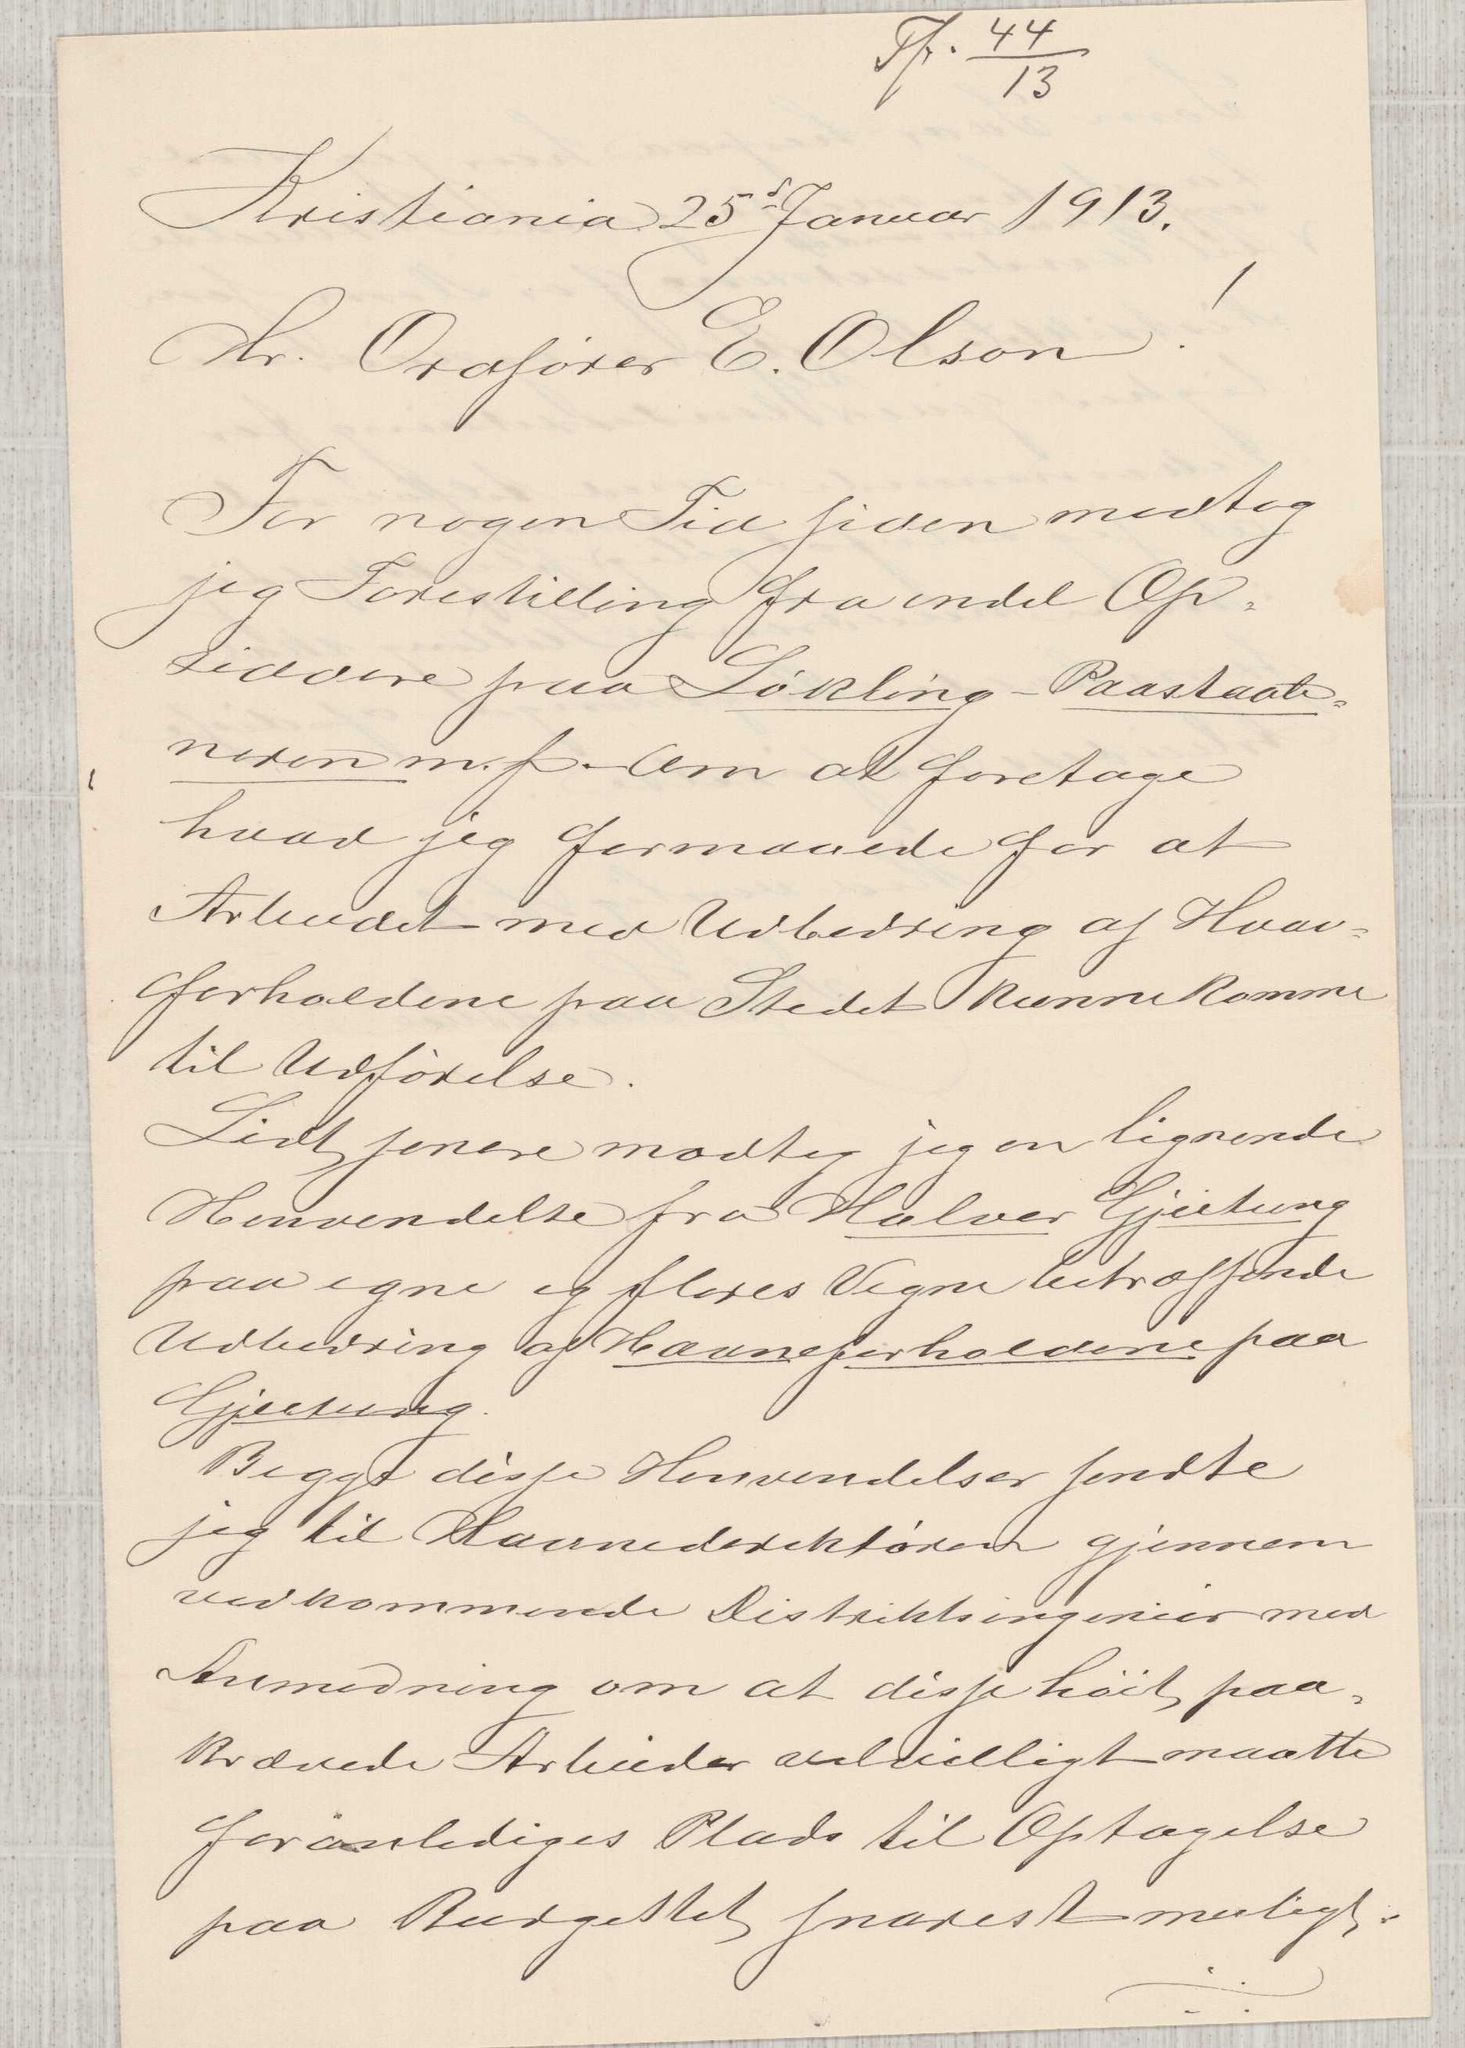 44
13
Kristiania 25 Januar 1913.
Hr. Ordfører E. Olson!
For nogen Tid siden modtog
jeg Forestilling fra endel Op-
siddere paa Løkling - Paastaate-
neren m. fl. om at foretage
hvad jeg formaaede for at
Arbeidet med Udbedring af Havn-
forholdene paa Stedet kunne komme
til Udførelse.
Lidt senere modtog jeg en lignende
Henvendelse fra Halvor Gjeitung
paa egne og fleres Vegne betræffende
Udbedring af Havneforholdene paa
Gjeitung.
Begge disse Henvendelser sendte
jeg til Havnedirektøren gjennem
vedkommende Distriktsingeniør med
Anmodning om at disse høit paa-
krævede Arbeider velvilligt maatte
foranlediges Plads til Optagelse
paa Budgettet snarest muligt.